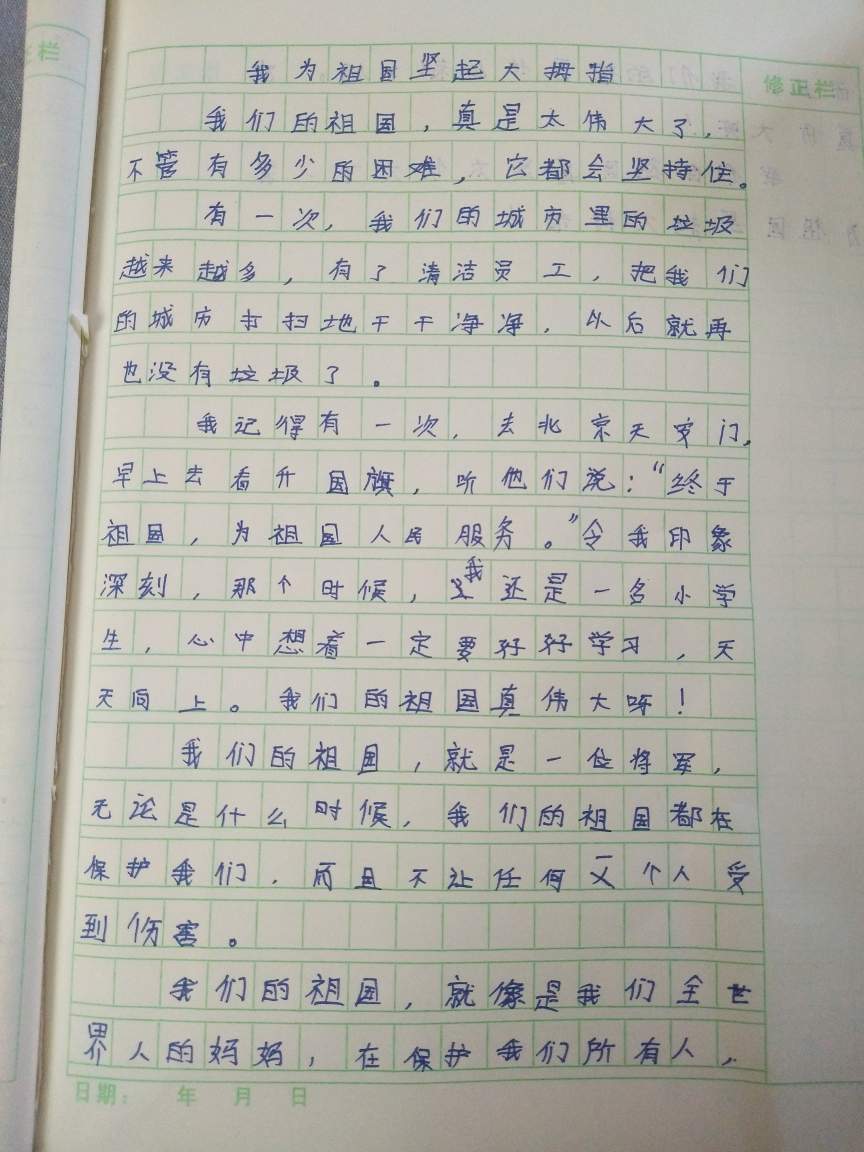 我为祖国坚起大拇指
修正栏
我们的祖国，真是太伟大了，
不管有多少的困难，它都会坚持住。
有一次，我们的城市里的垃圾
越来越多，有了清洁员工，把我们
的城市打扫地干干净净，以后就再
也没有垃圾了。
我记得有一次，去北京天安门，
早上去看升国旗，听他们说：“终于
祖国，为祖国人民服务。”令我印象
深刻，那个时候，我还是一名小学
生，心中想着一定要好好学习，天
天向上。我们的祖国真伟大呀！
我们的祖国，就是一位将军，
无论是什么时候，我们的祖国都在
保护我们，而且不让任何一个人受
到伤害。
我们的祖国，就像是我们全世
界人的妈妈，在保护我们所有人，
日期： 年 月 日